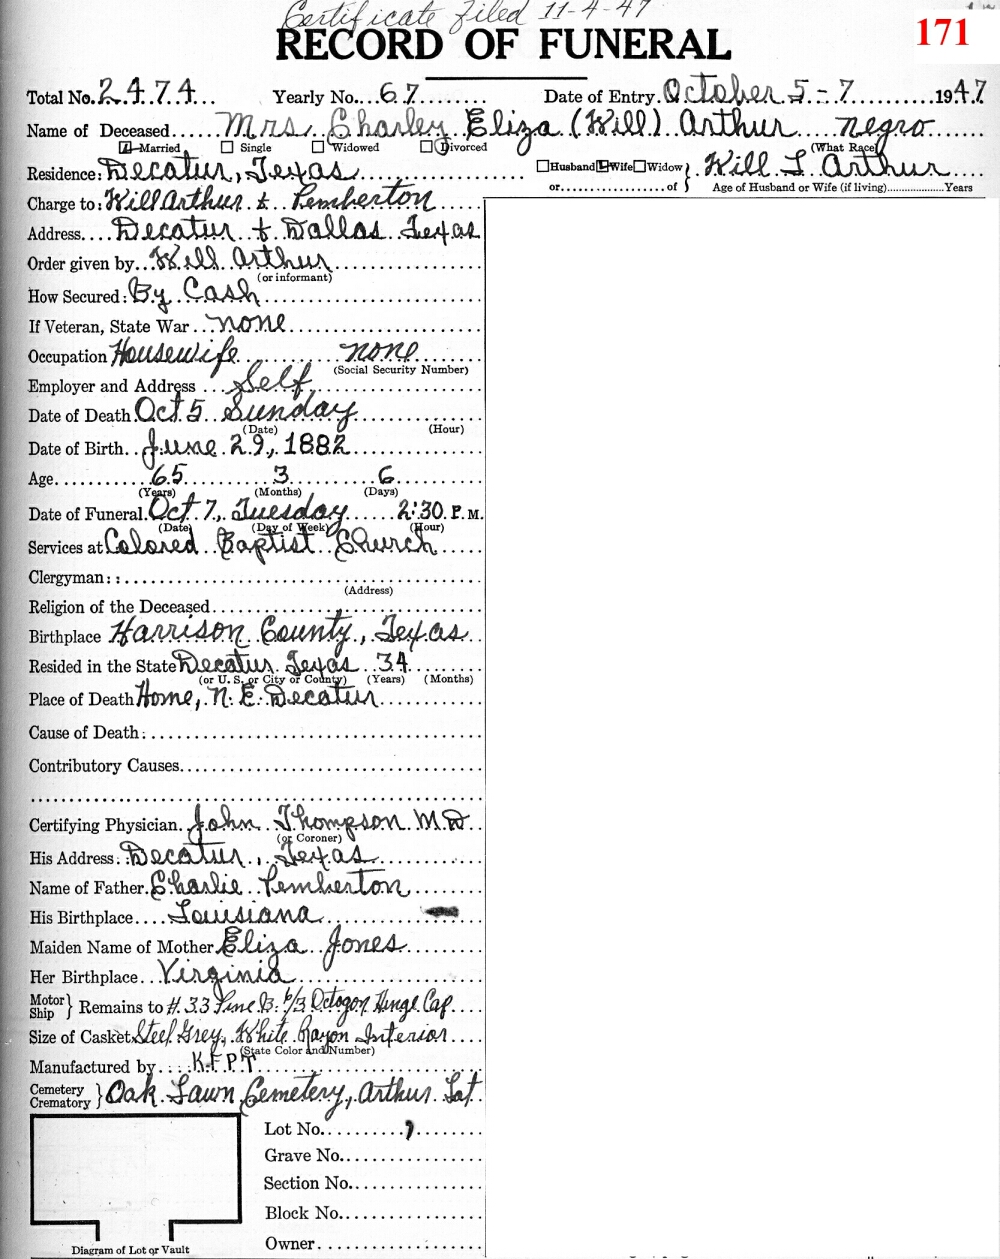 Certificate Filed 11-4-47
171
RECORD OF FUNERAL
Total No. 2474 Yearly No. 67 Date of Entry October 5-7 1947
Name of Deceased Mrs. Charley Eliza (Will) Arthur negro
Married Single Widowed Divorced (What Race)
Residence: Decatur, Texas Husband Wife Widow or of Will L. Arthur
Age of Husband or Wife (if living) Years
Charge to: Will Arthur & Pemberton
Address Decatur & Dallas Texas
Order given by Will Arthur
(or informant)
How Secured: By Cash
If Veteran, State War none
Occupation Housewife none
(Social Security Number)
Employer and Address Self
Date of Death Oct 5 Sunday
(Date) (Hour)
Date of Birth June 29, 1882
Age 65 3 6
(Years) (Months) (Days)
Date of Funeral Oct 7, Tuesday 2:30 P.M.
(Date) (Day of Week) (Hour)
Services at Colored Baptist Church
Clergyman:
(Address)
Religion of the Deceased
Birthplace Harrison County, Texas
Resided in the State Decatur Texas 34
(or U. S. or City or County) (Years) (Months)
Place of Death Home, N. E. Decatur
Cause of Death:
Contributory Causes
Certifying Physician John Thompson M.D.
(or Coroner)
His Address: Decatur, Texas
Name of Father Charlie Pemberton
His Birthplace Louisiana
Maiden Name of Mother Eliza Jones
Her Birthplace Virginia
Motor Ship } Remains to # 33 Pine B. 6/3 Octogon Hinge Cap
Size of Casket Steel Grey, White Rayon Interior
(State Color and Number)
Manufactured by K.F.P.T
Cemetery Crematory } Oak Lawn Cemetery, Arthur Lot
Lot No.
Grave No.
Section No.
Block No.
Owner
Diagram of Lot or Vault